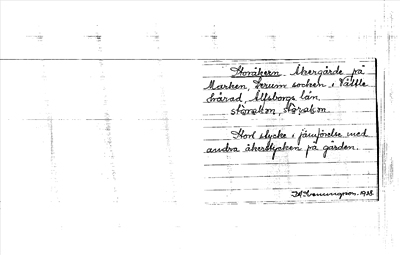 Storåkern. Åkergärde på
Marken, Lerum socken i Vättle
härad, Älfsborgs län.
Stort stycke i jämförelse med
andra åkerstycken på gården.
1928